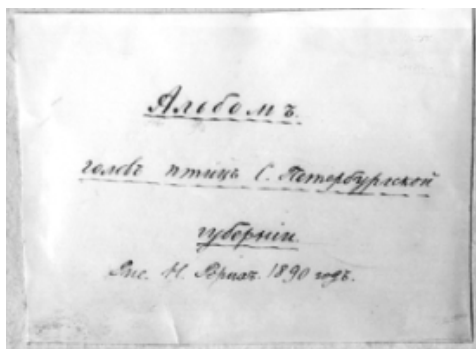 Альбомъ.
головъ птицъ С. Петербургской
губернiи.
Рис. Н. Рерихъ. 1890 годъ.